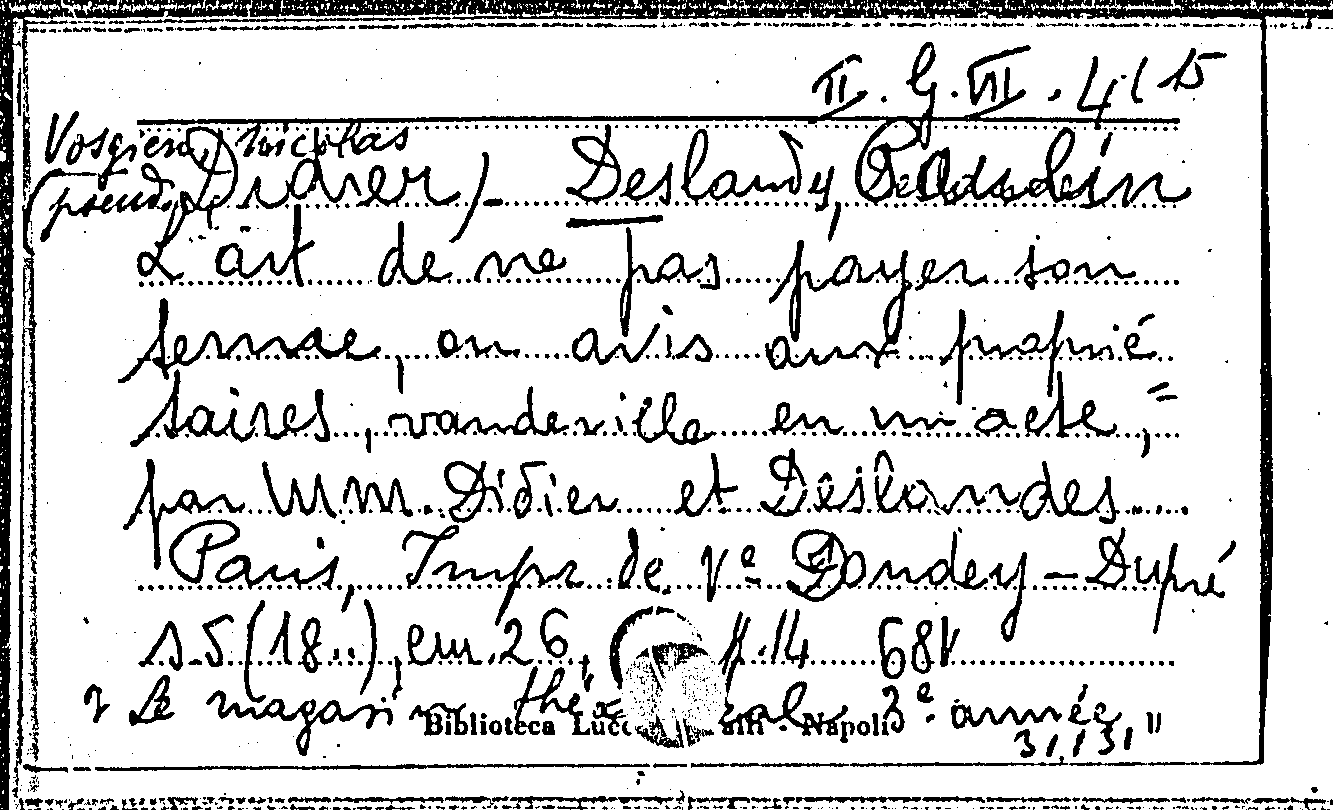 II. G. VII. 4(15
Vosgien, Nicolas
(pseud. de Didier) - Deslandes,
L'art de ne pas payer son
terme, ou avis aux proprié
taires, vaudeville en un acte, =
par MM. Didier et Deslandes....
Paris, Impr. de Ve Dondey-Dupré
s.d. (18..), cm. 26, p. 14 68V
Le magasin 3e année
Biblioteca Lucc - Napoli
31,131 "